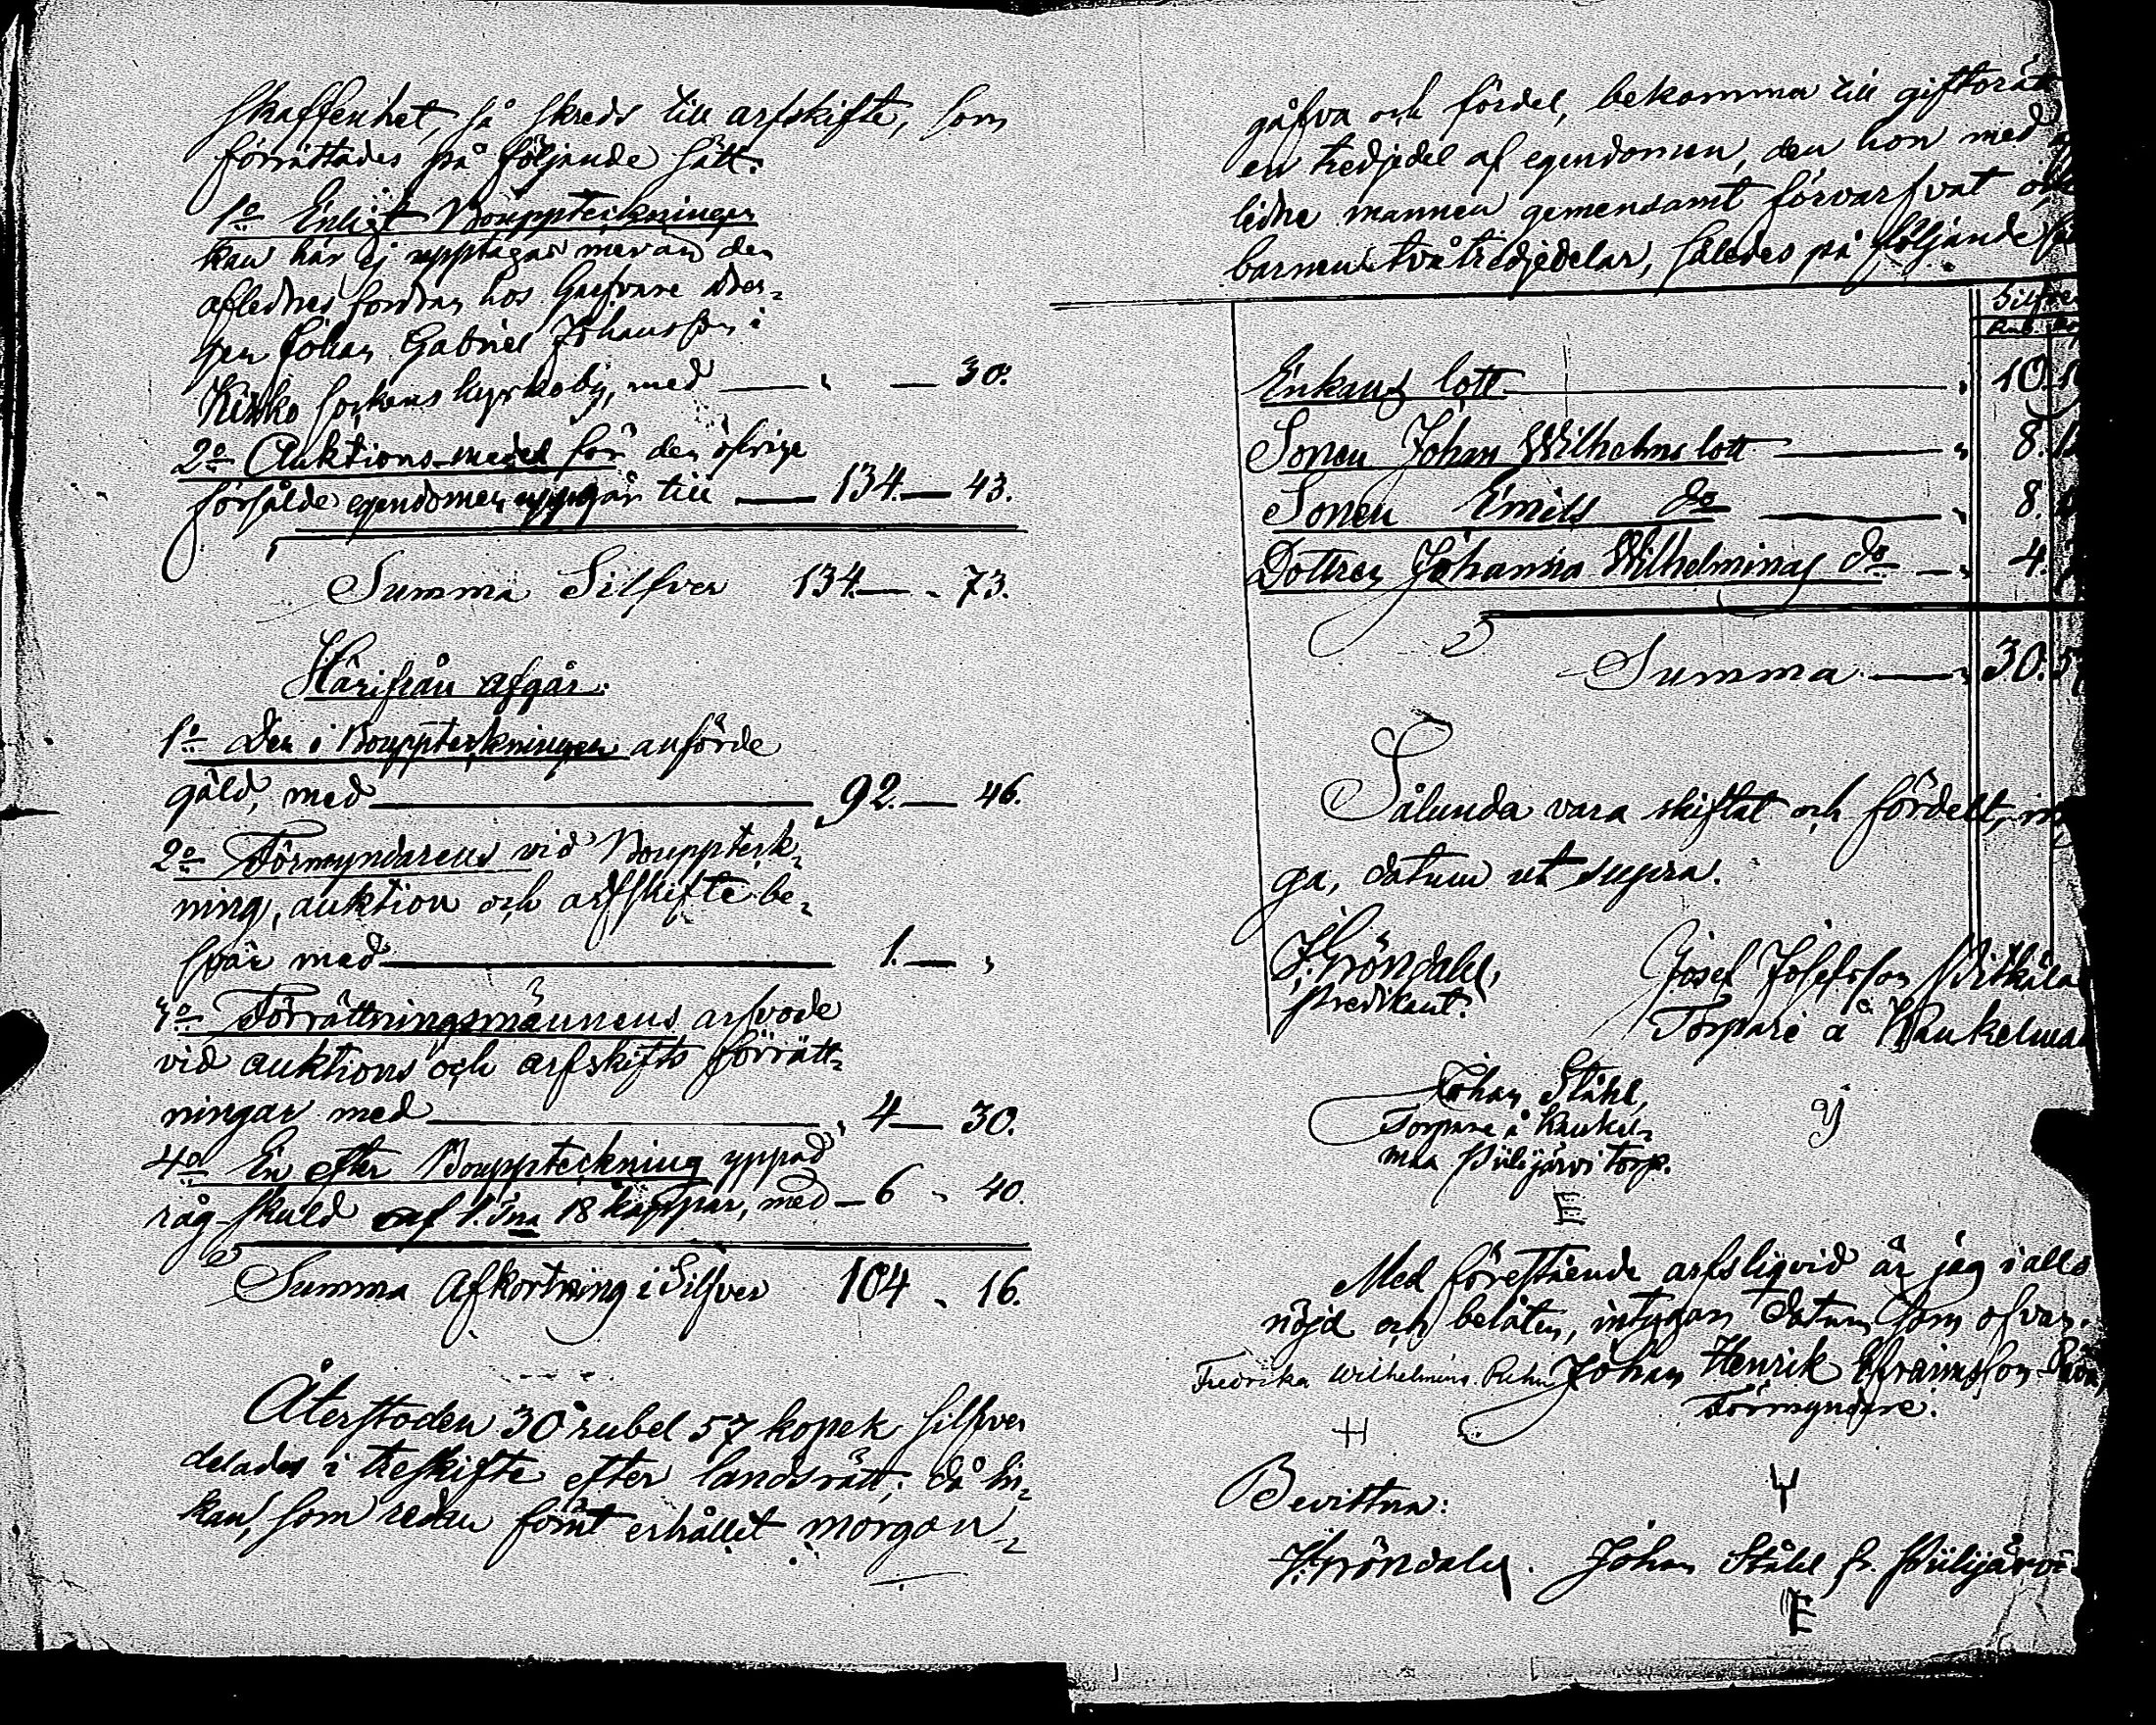 skaffenhet, så skreds till arfskifte, som
förrättades på följande sätt:
1o Enligt Bouppteckningen
kan här ej upptagas mer än den
aflednes fordran hos Garfvare
Johan Gabriel Johansson i
Kisko sockens kyrkoby, med — " — 30.
2o Auktions-medel för den öfriga
försålde egendomen uppgår till — 134. — 43.
Summa Silfver 134. — " 73.
Härifrån afgår.
1o Den i Bouppteckningen anförde
gäld, med — 92. — 46.
2o Förmyndarens vid Bouppteck-
ning, auktion och arfskifte be-
svär med — 1. — "
3o Förrättningsmännens arfvode
vid auktions och arfskifts förrätt-
ningar med — " 4 — 30.
4o En efter Bouppteckning yppad
råg-skuld af 1. Tna 18 kappar, med — 6 " 40.
Summa Afkortning i Silfver 104 " 16.
Återstoden 30 rubel 57 kopek silfver
delades i treskifte efter landsrätt; då En-
kan, som redan förut erhållit morgon-
gåfva och fördel, bekomma till giftorätt
en tredjedel af egendomen, den hon med
lidne mannen gemensamt förvarfvat och
barnen tvåtredjedelar, således på följande
Silfver
Rub.
Enkans lott — " 10.
Sonen Johan Wilhelms lott — " 8.
Sonen Emils do — " 8.
Dottren Johanna Wilhelminas do — " 4.
Summa — " 30. 57
Sålunda vara skiftat och fördelt,
ga, datum ut supra.
J. Gröndahl, Josef Josefsson
Predikant. Torpare å
Johan Ståhl,
Torpare å Kaukel-
maa Piilijärvi torp.
E
Med förestående arfsliqvid är jag i allo
nöjd och belåten, intygar Datum som ofvan.
Fredrika Wilhelmina Johan Henrik Efraimsson
Förmyndare.
H
Bevittna:
J. Gröndahl. Johan Ståhl fr. Piilijärvi
E